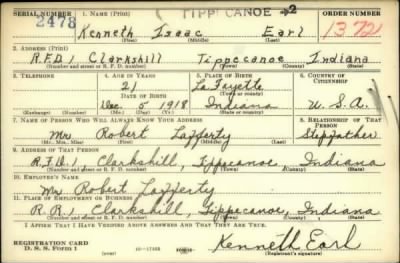 SERIAL NUMBER 1. NAME (Print) TIPPECANOE 2 ORDER NUMBER
2478 Kenneth Isaac Earl 13721
(First) (Middle) (Last)
2. ADDRESS (Print)
R.F.D. 1 Clarkshill Tippecanoe Indiana
(Number and street or R. F. D. number) (Town) (County) (State)
3. TELEPHONE 4. AGE IN YEARS 5. PLACE OF BIRTH 6. COUNTRY OF CITIZENSHIP
21 LaFayette
DATE OF BIRTH (Town or county)
Dec 5 1918 Indiana U.S.A.
(Exchange) (Number) (Mo.) (Day) (Yr.) (State or country)
7. NAME OF PERSON WHO WILL ALWAYS KNOW YOUR ADDRESS 8. RELATIONSHIP OF THAT PERSON
Mr Robert Lafferty Stepfather
(Mr., Mrs., Miss) (First) (Middle) (Last)
9. ADDRESS OF THAT PERSON
R.F.D.1, Clarkshill, Tippecanoe, Indiana
(Number and street or R. F. D. number) (Town) (County) (State)
10. EMPLOYER'S NAME
Mr Robert Lafferty
11. PLACE OF EMPLOYMENT OR BUSINESS
R.R.1, Clarkshill, Tippecanoe, Indiana
(Number and street or R. F. D. number) (Town) (County) (State)
I AFFIRM THAT I HAVE VERIFIED ABOVE ANSWERS AND THAT THEY ARE TRUE.
REGISTRATION CARD
D. S. S. FORM 1 Kenneth Earl
(over) (Registrant's signature)